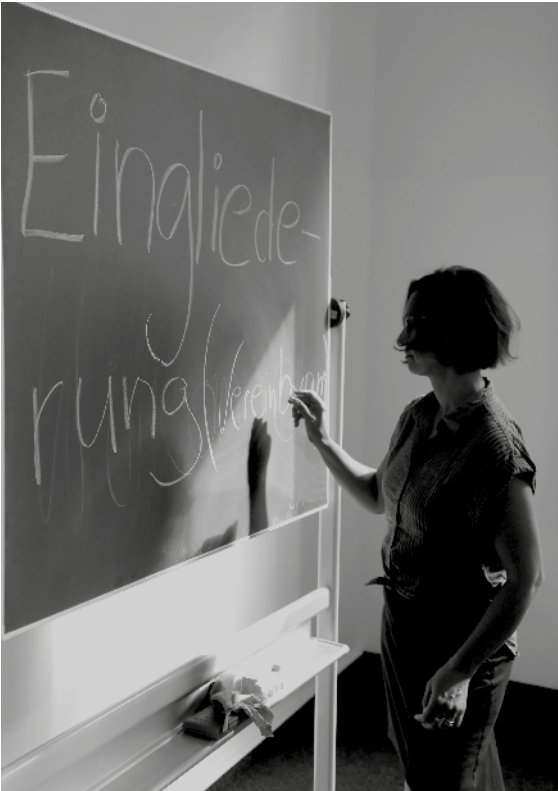 Eingliede-
rungs(vereinbarung